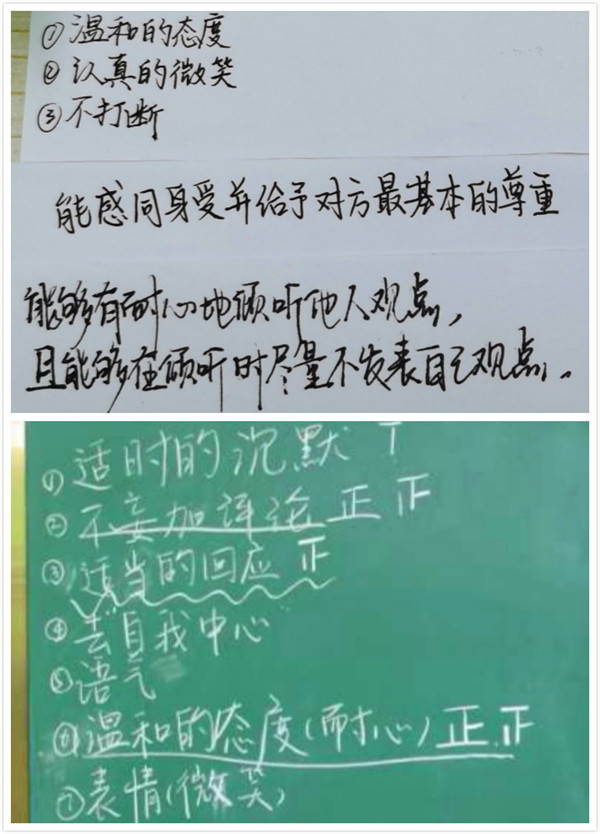 ①温和的态度
②认真的微笑
③不打断
能感同身受并给予对方最基本的尊重
能够有耐心地倾听他人观点,
且能够在倾听时尽量不发表自己观点。
①适时的沉默 丅
②不妄加评论 正 正
③适当的回应 正
④去自我中心
⑤语气
⑥温和的态度(耐心) 正 正
⑦表情(微笑)